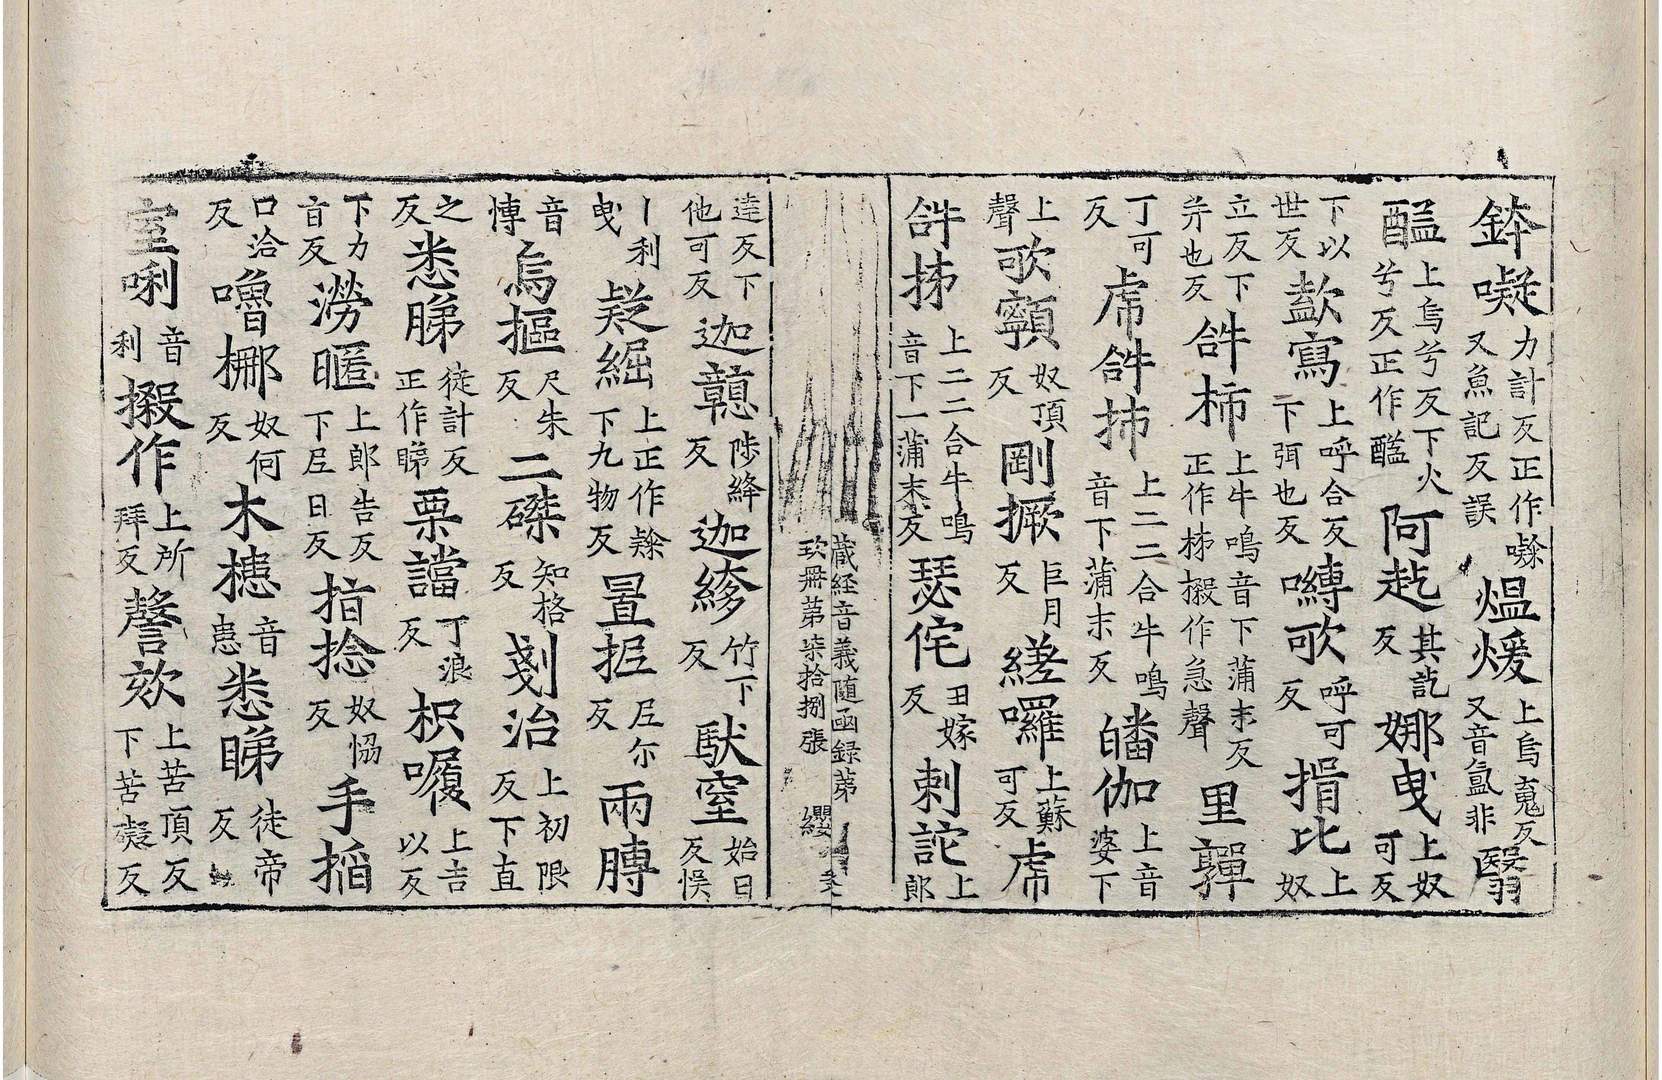 鉢㘈力計反正作㘑又魚記反誤熅煖上烏𡮢反又音氲非翳
醯上烏兮反下火兮反正作醯阿赲其訖反娜曳上奴可反
下以世反歖寫上呼合反下弭也反嚩歌呼可反揟比上奴
立反下弁也反𤙖柿上牛鳴音下蒲末反正作柹㩧作急聲里嚲
丁可反虎𤙖抪上二二合牛鳴音下蒲末反皤伽上音婆下
上聲歌顐奴頂反剛撅巨月反縒囉上蘇可反虎
𤙖抹上二二合牛鳴音下一蒲末反瑟侘丑嫁反刺詑上郎
藏経音義随函録第玖冊第柒拾捌張 纓
達反下他可反迦戇陟絳反迦縿竹下反馱窒始日反悮
丨利曳疑䋧上正作㘑下九物反置抳尼尔反兩膊
音博烏摳尺朱反二磔知格反剗治上初限反下直
之反悉睇徒計反正作睇栗讜丁浪反枳㗚上吉以反
下力盲反澇暱上郎告反下尼日反㨖捻奴恊反手搯
口洽反嚕梛奴何反木槵音患悉睇徒帝反
室唎音利摋作上所拜反謦欬上苦頂反下苦礙反